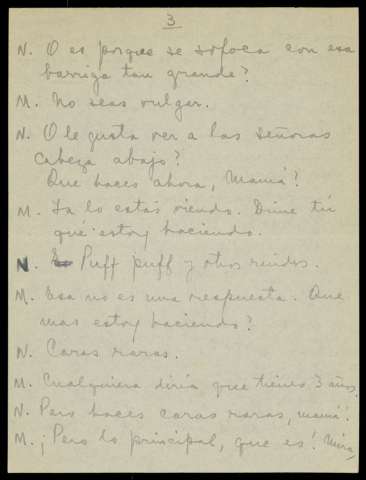 3
N. O es porque se sofoca con esa
barriga tan grande?
M. No seas vulgar.
N. O le gusta ver a las señoras
cabeza abajo?
Que haces ahora, Mamá?
M. Ya lo estás viendo. Dime tú
qué estoy haciendo.
N. Puff puff y otros ruidos.
M. Esa no es una respuesta. Que
mas estoy haciendo?
N. Caras raras.
M. Cualquiera diría que tienes 3 años.
N. Pero haces caras raras, mamá!
M. ¡Pero lo principal, que es! Mira,